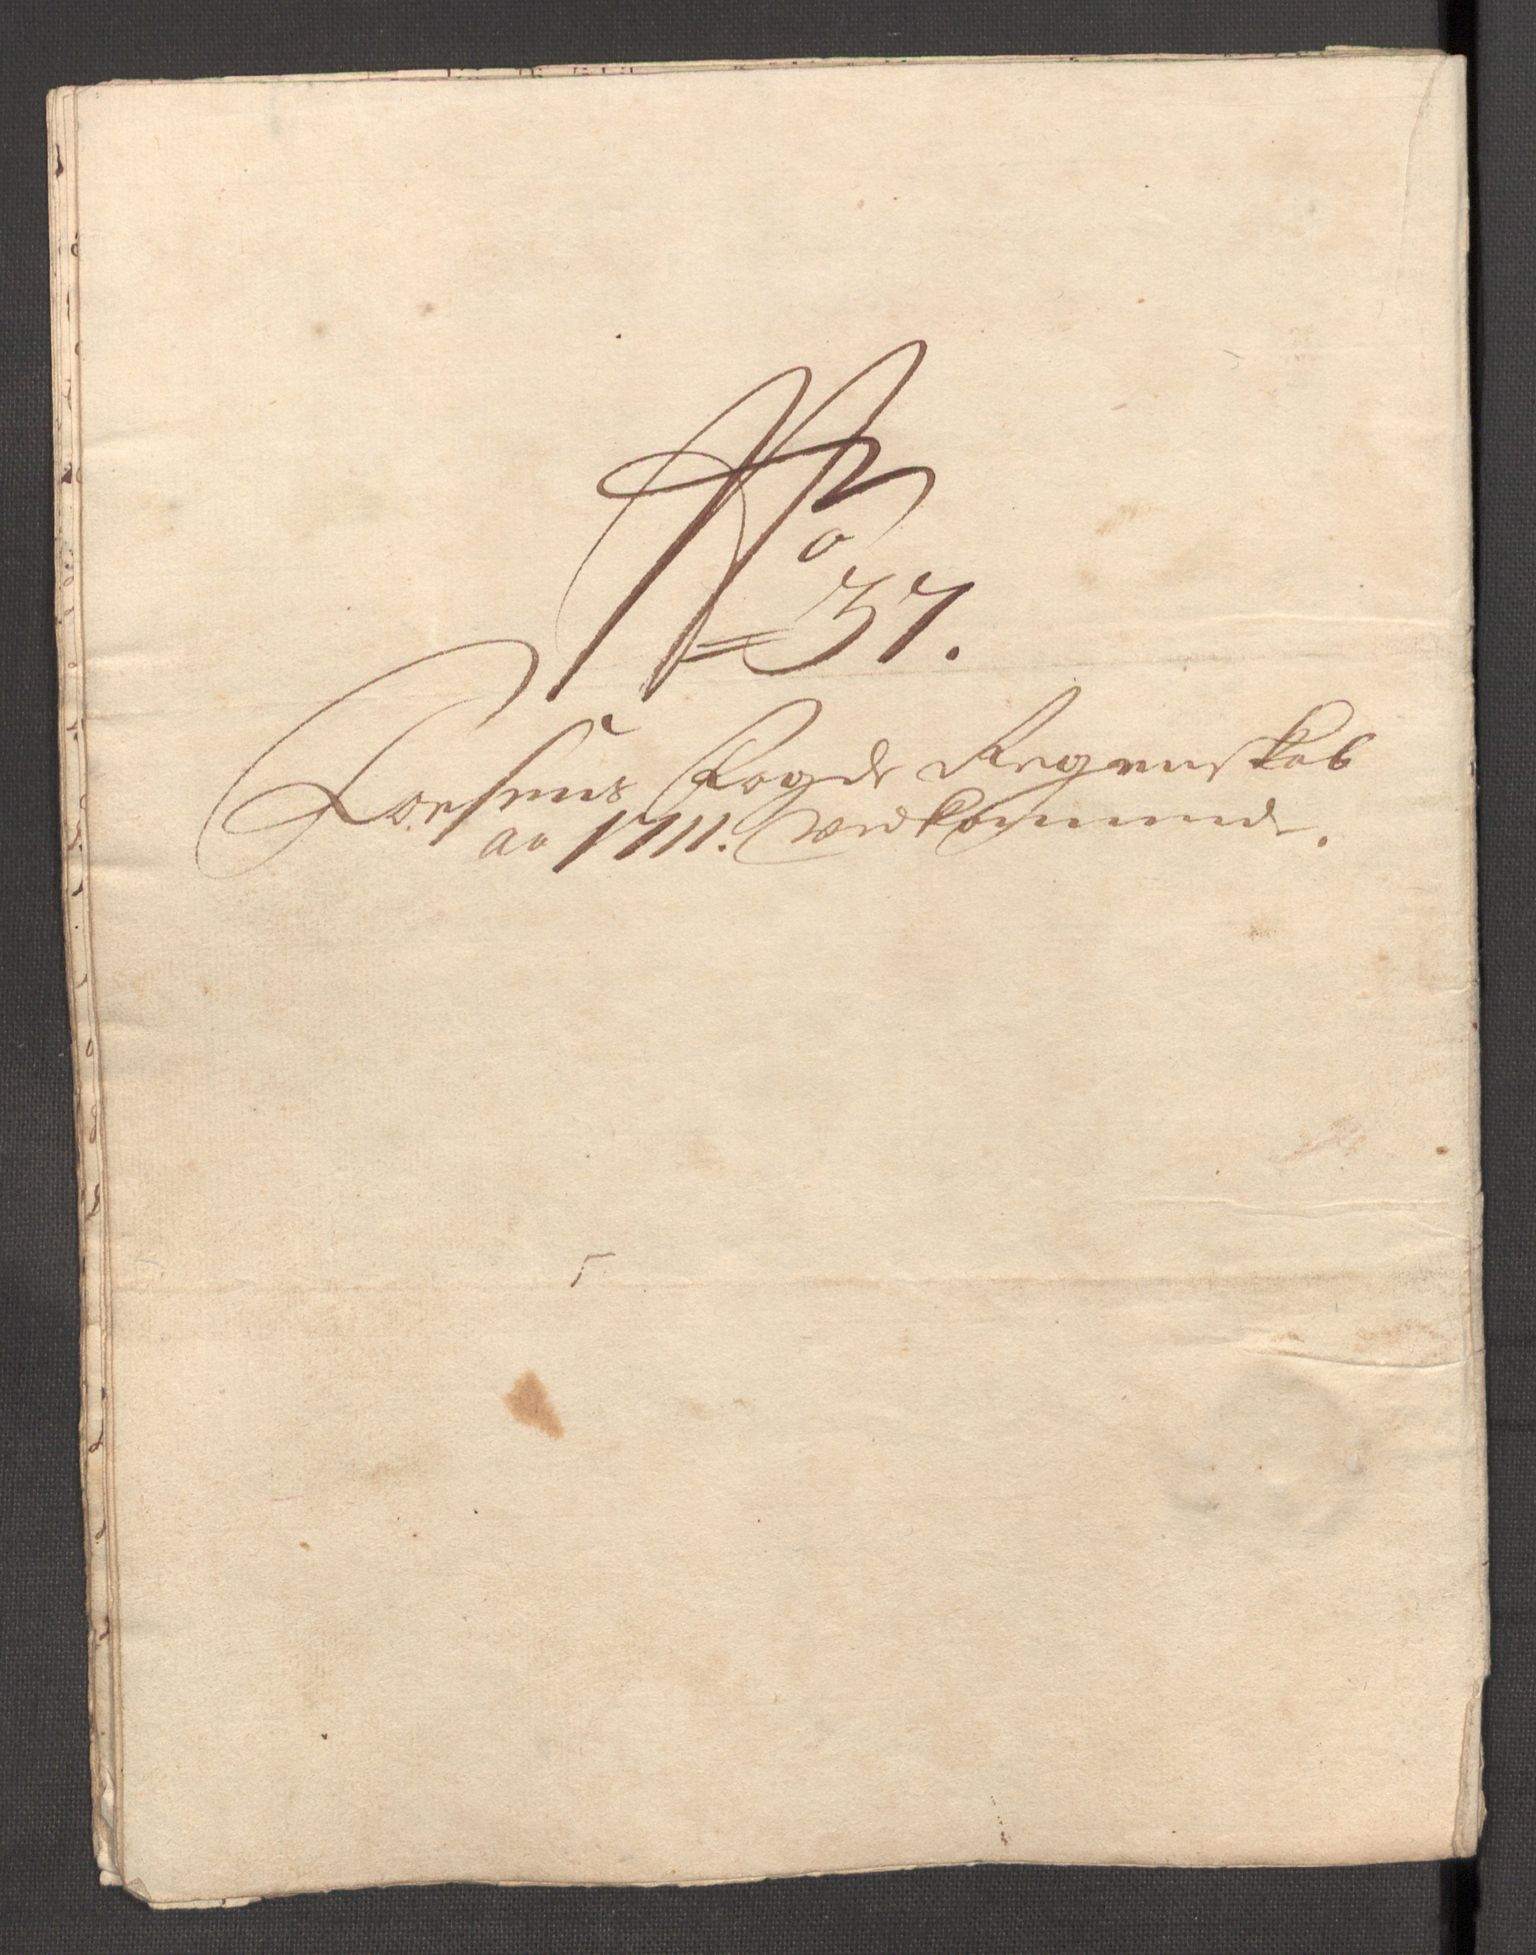 No
37.
Fosens Fogde Regenskab
ao 1711. Vedkommende.